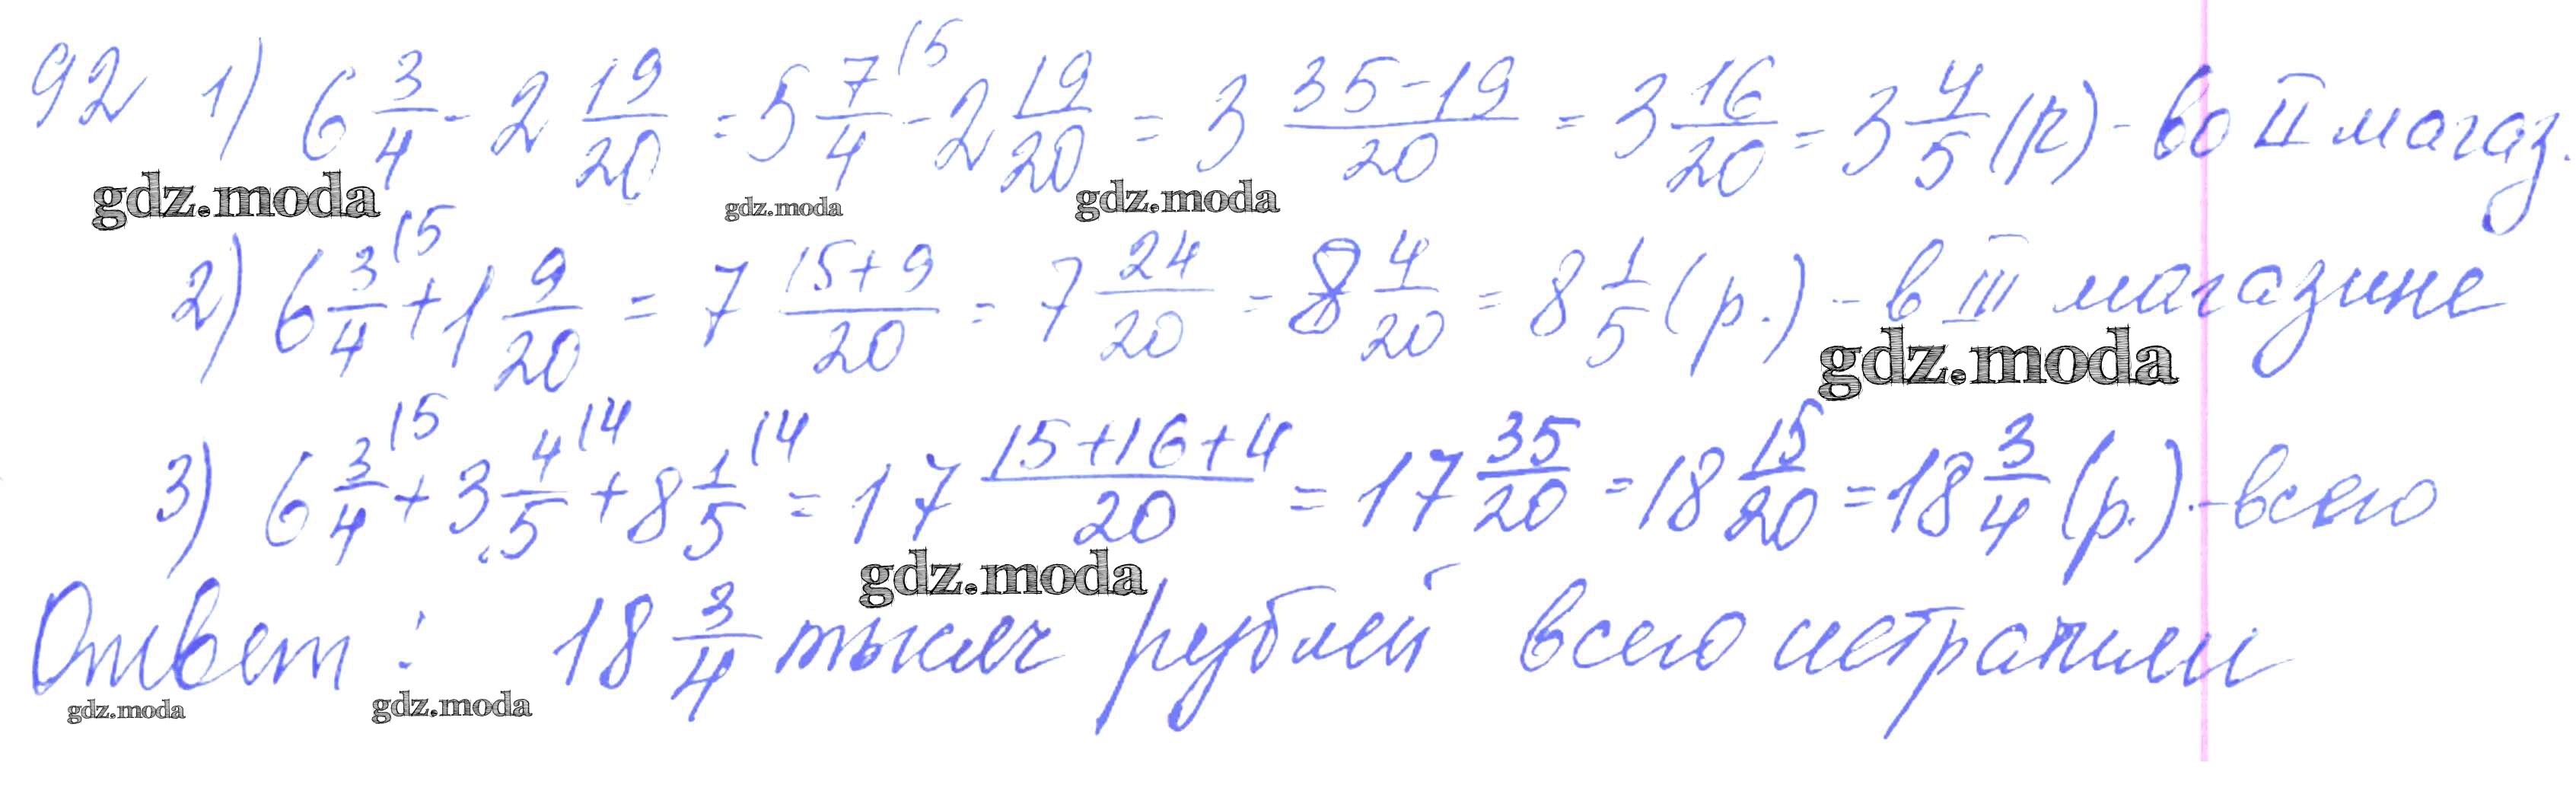 92 1) 6 3/4 - 2 19/20 = 5 7/4 (5 - 2 19/20 = 3 35-19/20 = 3 16/20 = 3 4/5 (р) - во II магаз.
gdz.moda gdz.moda gdz.moda
2) 6 3/4 (5 + 1 9/20 = 7 15+9/20 = 7 24/20 = 8 4/20 = 8 1/5 (р.) - в III магазине
gdz.moda
3) 6 3/4 (5 + 3 4/5 (4 + 8 1/5 (4 = 17 15+16+4/20 = 17 35/20 = 18 15/20 = 18 3/4 (р.) - всего
gdz.moda
Ответ: 18 3/4 тысяч рублей всего истратили
gdz.moda gdz.moda